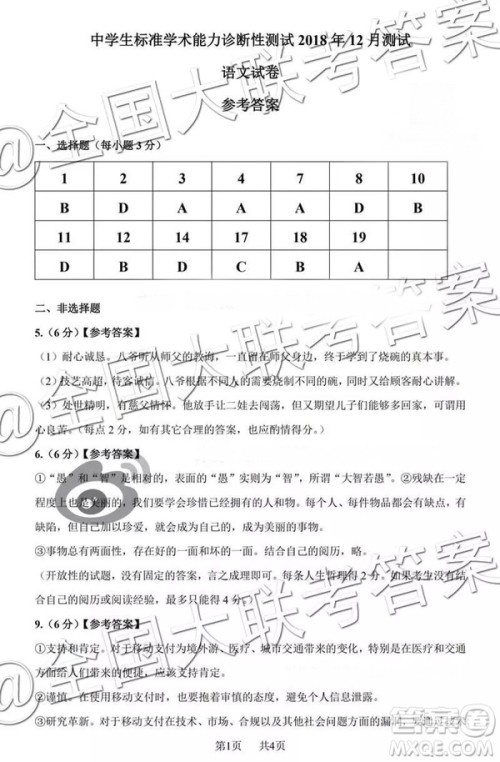 中学生标准学术能力诊断性测试 2018 年 12 月测试
语文试卷
参考答案
一、选择题（每小题 3 分）
1 2 3 4 7 8 10
B D A A A D B
11 12 14 17 18 19
D B D C B A
二、非选择题
5.（6 分）【参考答案】
（1）耐心诚恳。八爷听从师父的教诲，一直留在师父身边，终于学到了烧碗的真本事。
（2）技艺高超，待客诚信。八爷根据不同人的需要找到相应的碗，让人们非常满意。
（3）处世精明，有慈父情怀。他放手让二娃去闯荡，但又期望儿子们做碗能够对得起买家，用
心良苦。（每点 2 分，如有其它合理的答案，也应酌情得分。）
6.（6 分）【参考答案】
①“愚”和“智”是相对的，表面的“愚”实则为“智”，所谓“大智若愚”。②残缺的东西
也是美丽的，我们不但要欣赏完美，而且要学会珍惜我们已经拥有的人和物。每个人、每件物品
都有优点，但自己加以珍爱，就会变成真正美好的人或事物。
③事物总有两面性，存在不同的一面的一面，结合自己的阅历，略。
（开放性的试题，没有固定的答案，言之成理即可。每条人生哲理得 2 分。如果考生没有结
合自己的阅历或阅读经验，最多只能得 4 分。）
9.（6 分）【参考答案】
①支持和肯定。对于移动支付为境外游、医疗、城市交通带来的变化，以及在医疗和交通方面
给人们带来的便捷，应该支持和肯定。
②谨慎。在移动支付
③研究革新。对于移动支付在技术、市场、合规以及其他社会问题方面的漏洞，
第1页 共4页
@全国大联考答案
@全国大联考答案
@全国大联考答案